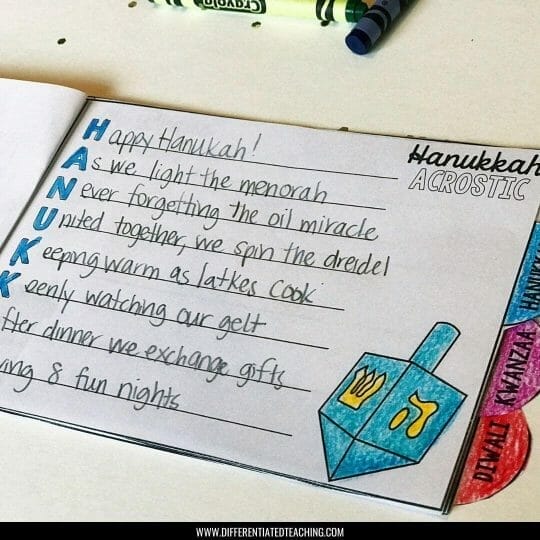 Crayola
Hanukkah
ACROSTIC
Happy Hanukah!
As we light the menorah
Never forgetting the oil miracle
United together, we spin the dreidel
Keeping warm as latkes cook
Keenly watching our gelt
fter dinner we exchange gifts
ving 8 fun nights
ש ה
HANUKK
KWANZAA
DIWALI
WWW.DIFFERENTIATEDTEACHING.COM